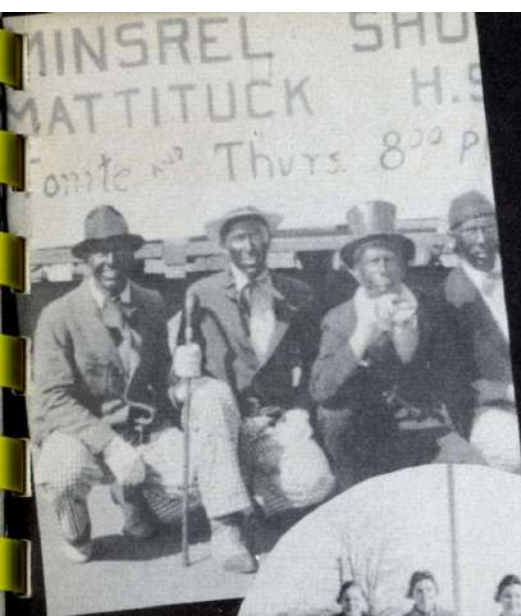 MINSREL SHO
MATTITUCK H.S
Tonite and Thurs. 8⁰⁰ P